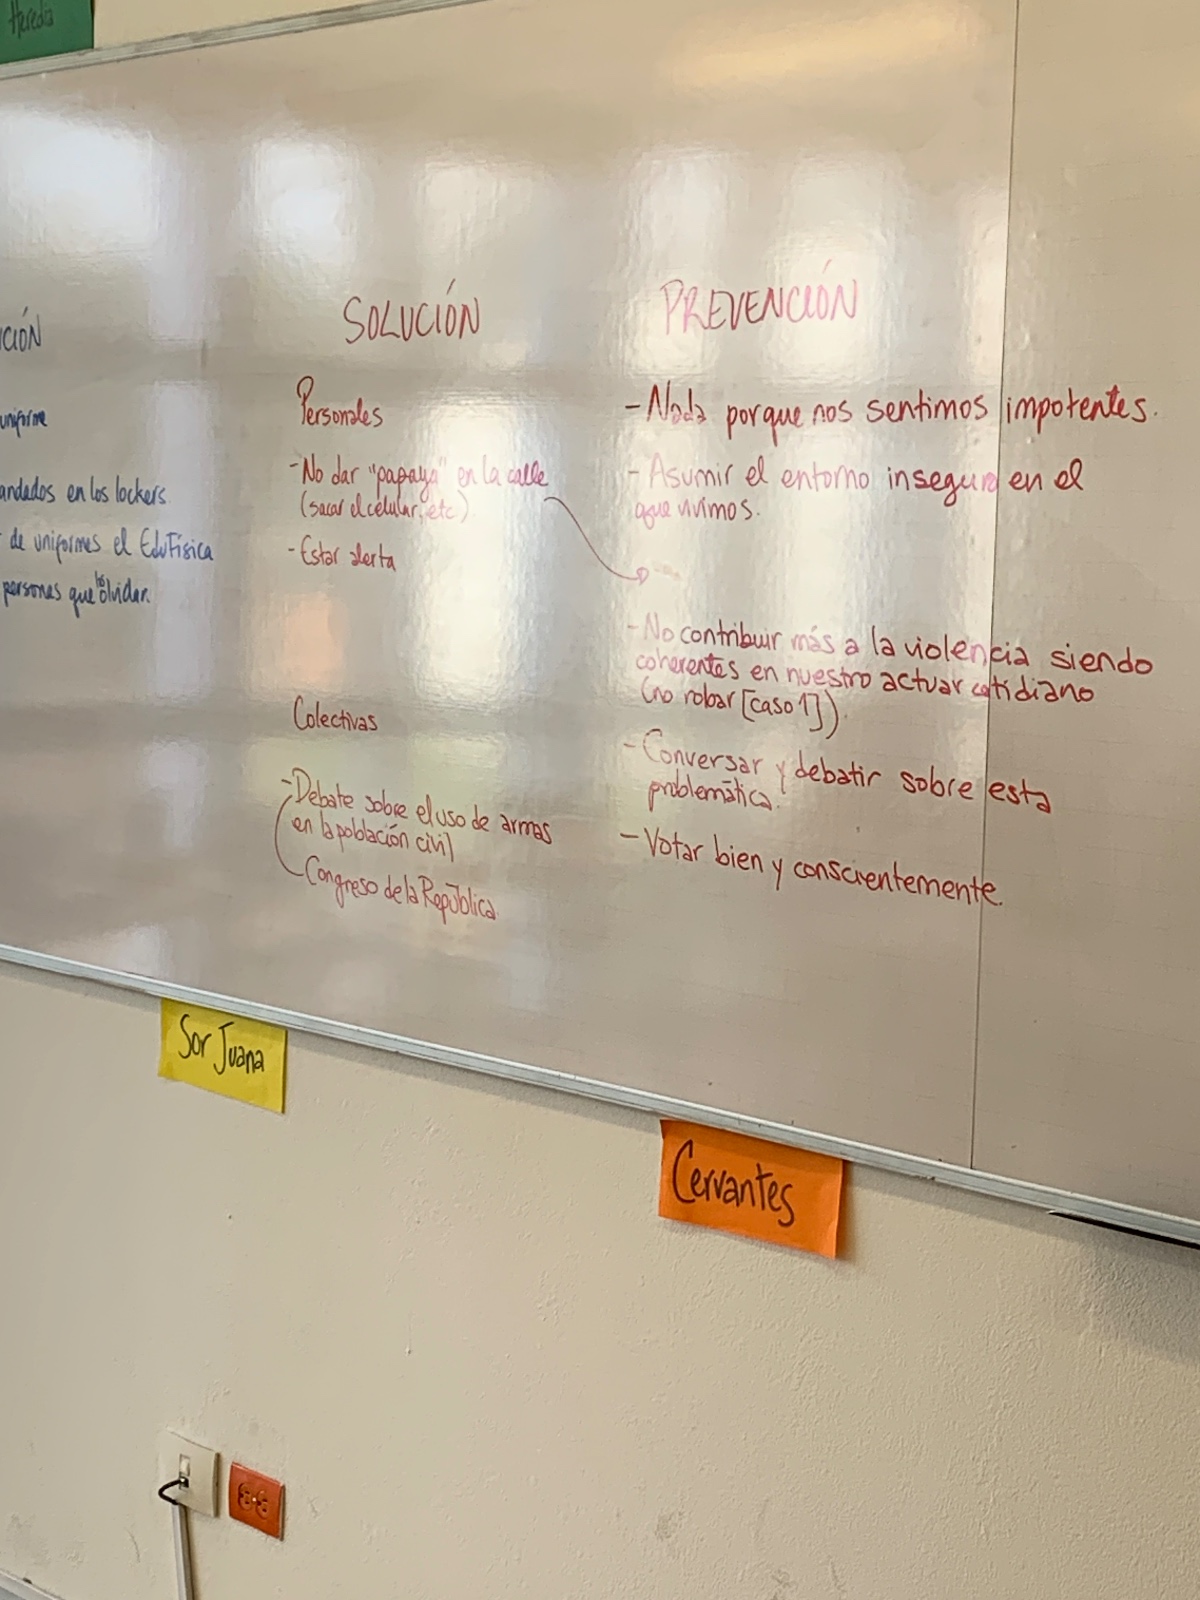 Heredia
CIÓN
uniforme
andados en los lockers.
de uniformes el EduFísica
personas que lo olvidan.
SOLUCIÓN
Personales
- No dar "papaya" en la calle
(sacar el celular, etc).
- Estar alerta
Colectivas
- Debate sobre el uso de armas
en la población civil
Congreso de la República.
PREVENCIÓN
- Nada porque nos sentimos impotentes.
- Asumir el entorno inseguro en el
que vivimos.
- No contribuir más a la violencia siendo
coherentes en nuestro actuar cotidiano
(no robar [caso 1]).
- Conversar y debatir sobre esta
problemática.
- Votar bien y conscientemente.
Sor Juana
Cervantes